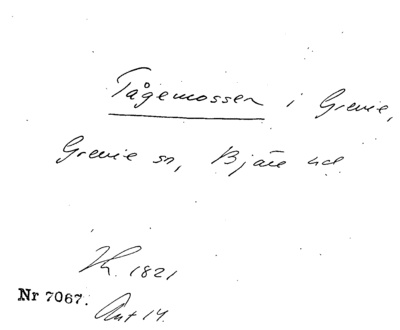 Tågemossen i Grevie,
Grevie sn, Bjäre hd
Th. 1821
Nr 7067.
Ant 14.